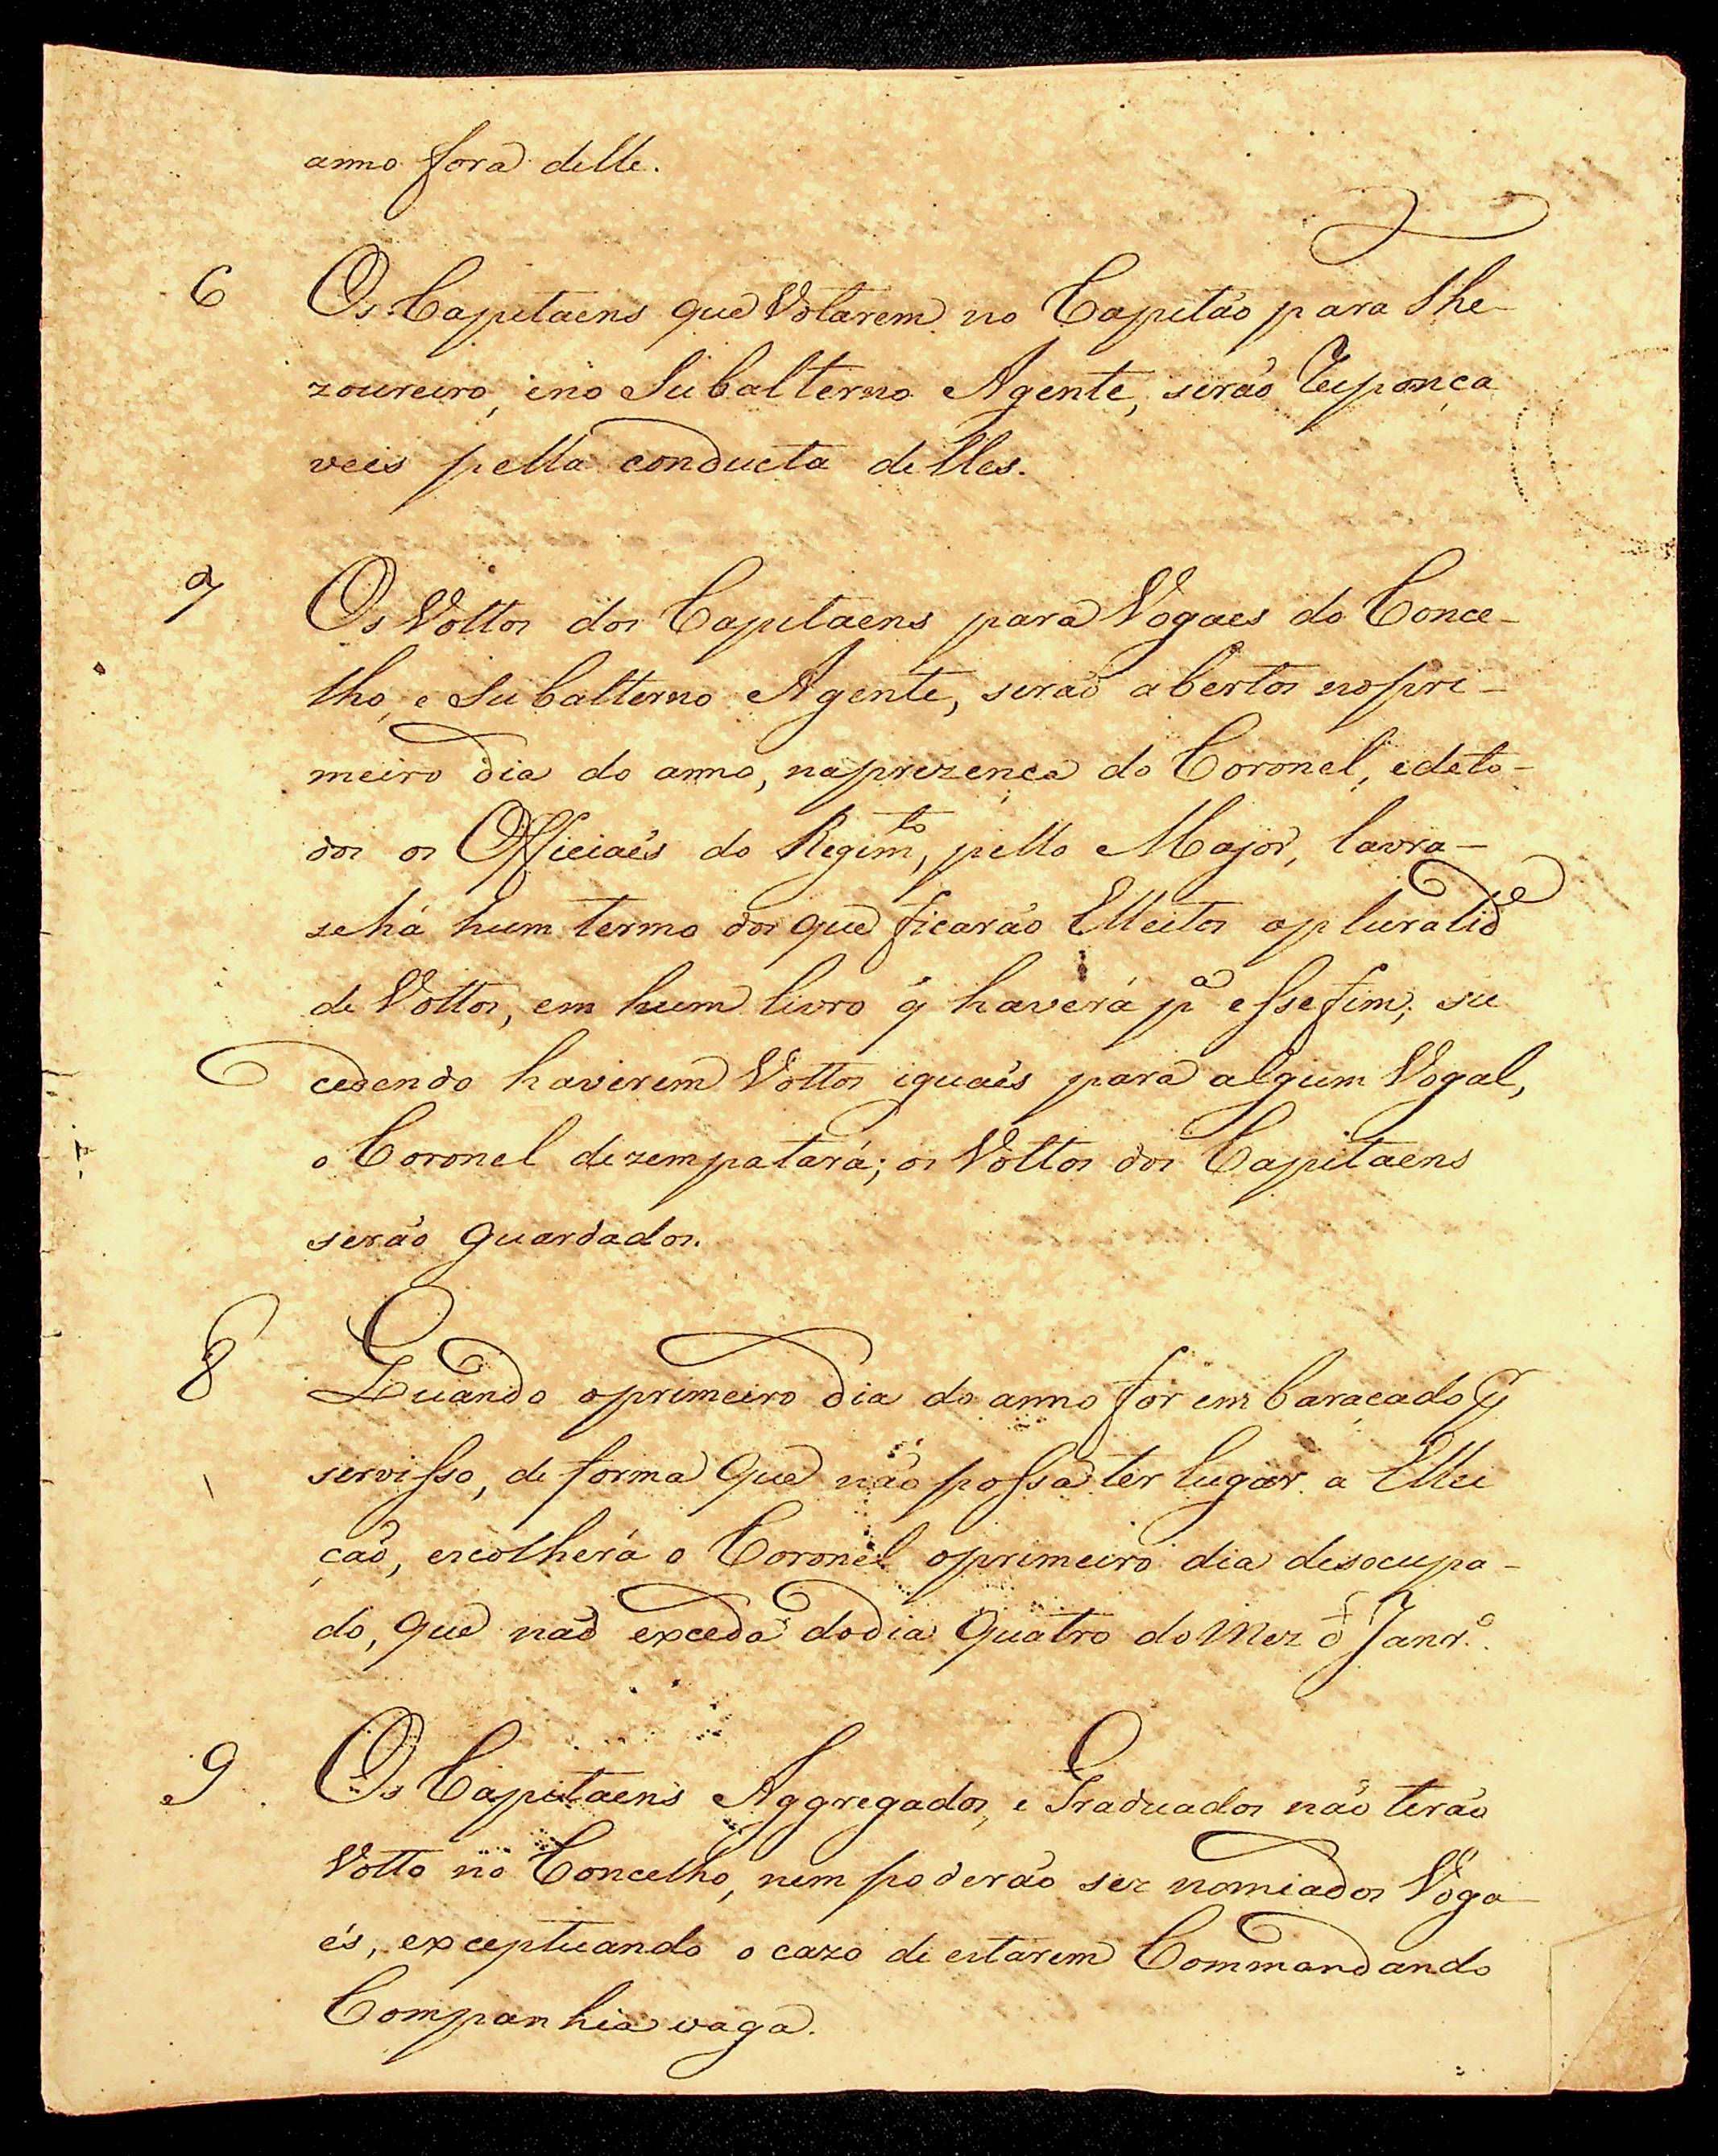 anno fora delle.
6 Os Capitaens que Votarem no Capitão para The-
zoureiro, eno Subalterno Agente, serão Responça
veis pella conducta delles.
7 Os Vottos dos Capitaens para Vogaes do Conce-
lho, e Subalterno Agente, serão abertos nopri-
meiro dia do anno, naprezença do Coronel, edeto-
dos os Officiaés do Regim.to, pello Major, lavra-
sehá hum termo dos que ficarão Elleitos apluralid.e
de Vottos, em hum livro q̃ haverá p.a essefim; su
cedendo haverem Vottos iguaés para algum Vogal,
o Coronel dezempatará; os Vottos dos Capitaens
serão guardados.
8 Quando oprimeiro dia do anno for embaraçado
servisso, de forma que não possa ter lugar a Ellei
ção, escolherá o Coronel oprimeiro dia desocupa-
do, que não exceda dodia quatro do Mez d' Janr.o
9 Os Capitaens Aggregados, e Graduados não terão
Votto no Concelho, nem poderão ser nomiados Voga
és, exceptuando o cazo de estarem Commandando
Companhia vaga.